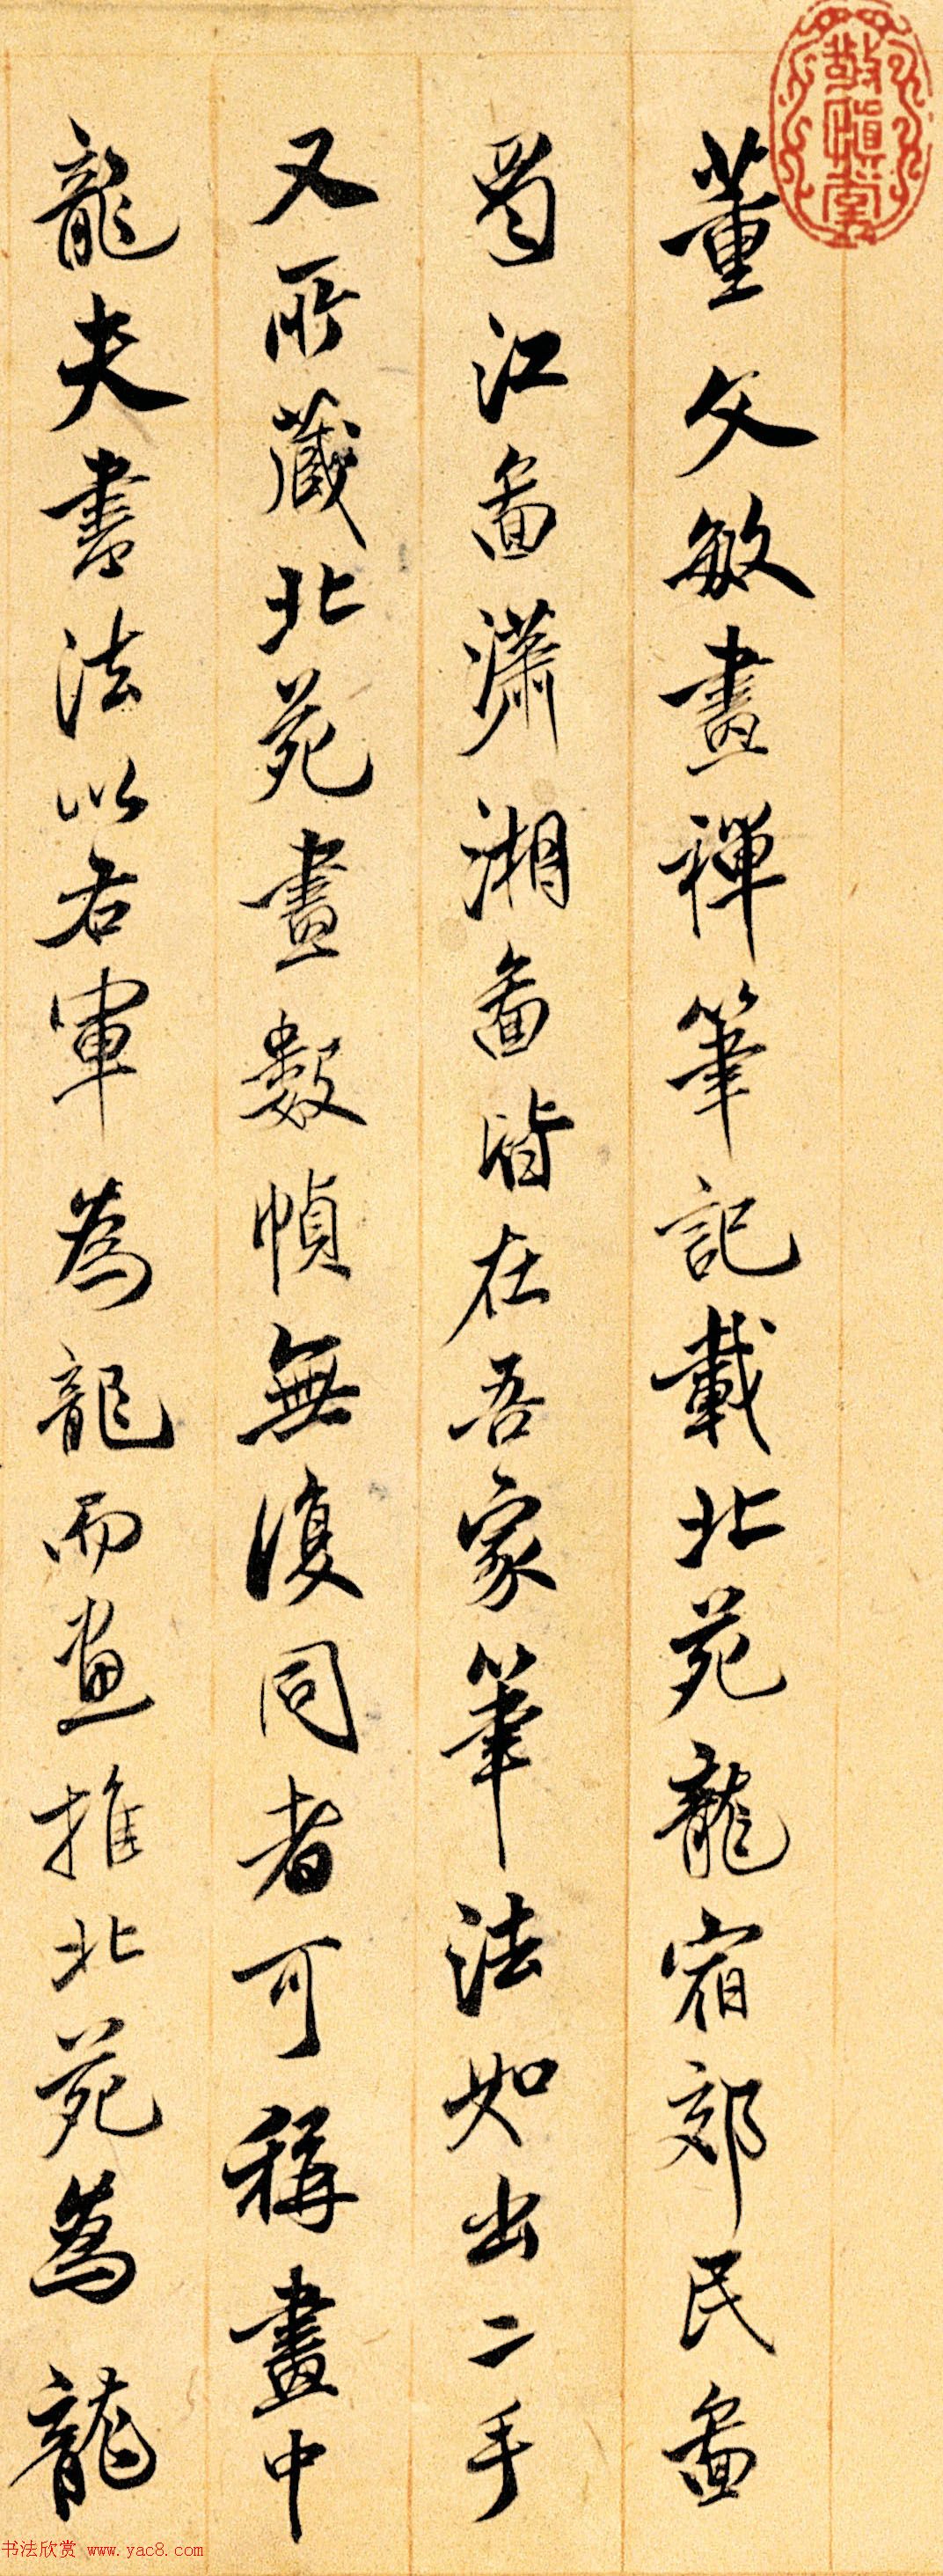 董文敏畫禪筆記載北苑龍宿郊民啚
蜀江啚瀟湘啚皆在吾家筆法如出二手
又所藏北苑畫數幀無復同者可稱畫中
龍夫書法以右軍為龍而畫推北苑為龍
敬慎堂
书法欣赏 www.yac8.com